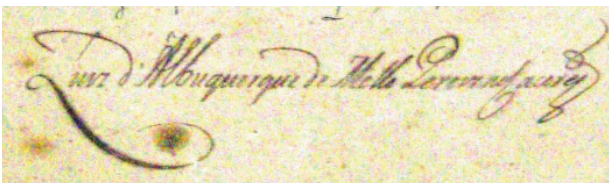 Luiz d'Albuquerque de Mello Pereira e Caceres